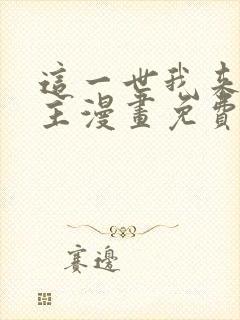 這一世我來
主漫畫免費
賽邊